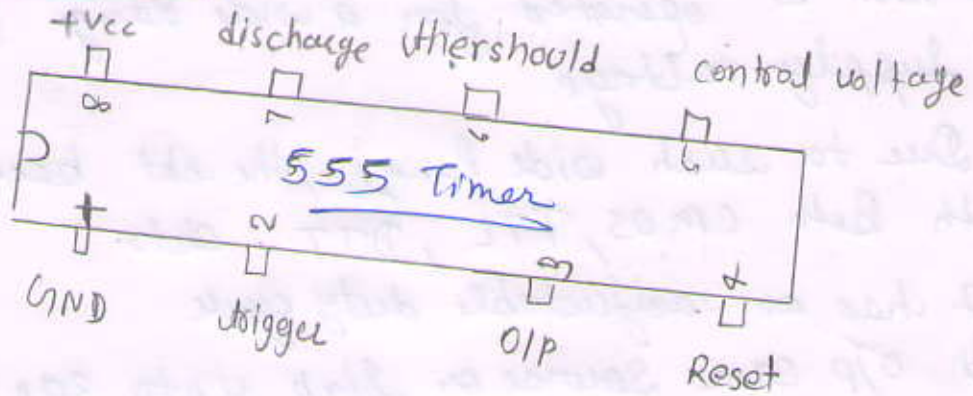 +Vcc discharge thershould control voltage
8 7 6 5
555 Timer
1 2 3 4
GND trigger O/P Reset